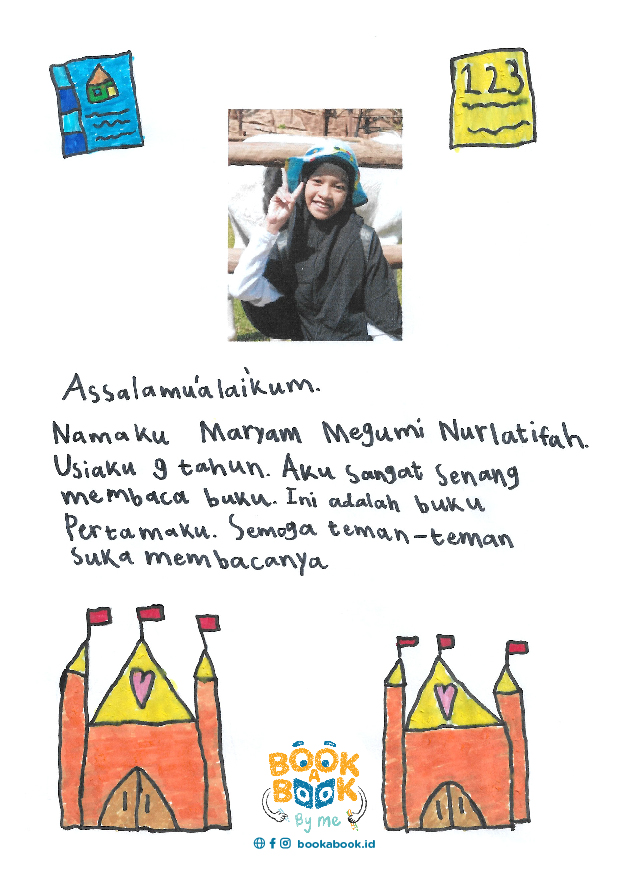 1 2 3
Assalamu'alaikum.
Namaku Maryam Megumi Nurlatifah.
Usiaku 9 tahun. Aku sangat senang
membaca buku. Ini adalah buku
Pertamaku. Semoga teman-teman
suka membacanya
BOOK
A
BOOK
By me
bookabook.id